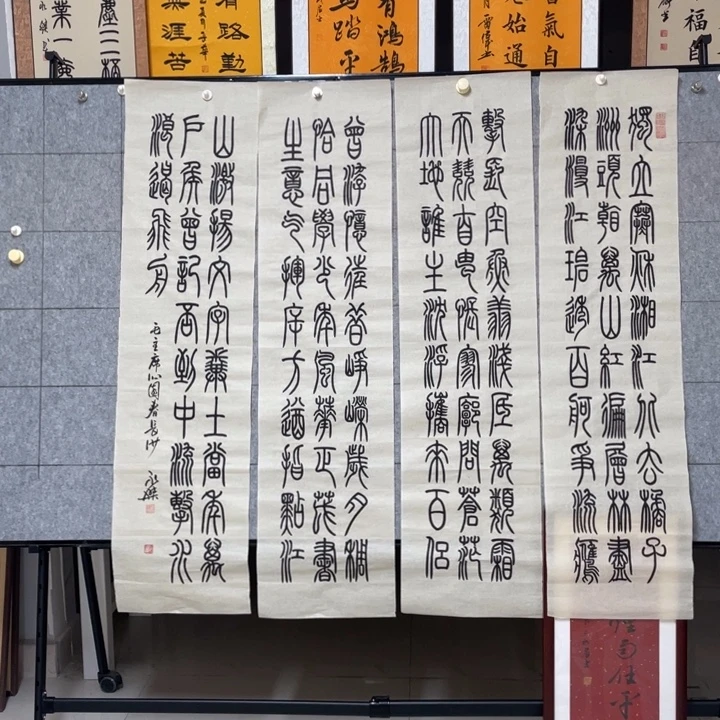 獨立寒秋湘江北去橘子
洲頭看萬山紅徧層林盡
染漫江碧透百舸爭流鷹
擊長空魚翔淺底萬類霜
天競自由悵寥廓問蒼茫
大地誰主沈浮攜來百侶
曾游憶往昔崢嶸歲月稠
恰同學少年風華正茂書
生意气揮斥方遒指點江
山激揚文字糞土當年萬
戶侯曾記否到中流擊水
浪遏飛舟
毛主席沁園春長沙
福自
氣自
始通
有鴻鵠
馬踏平
有路勤
無涯苦